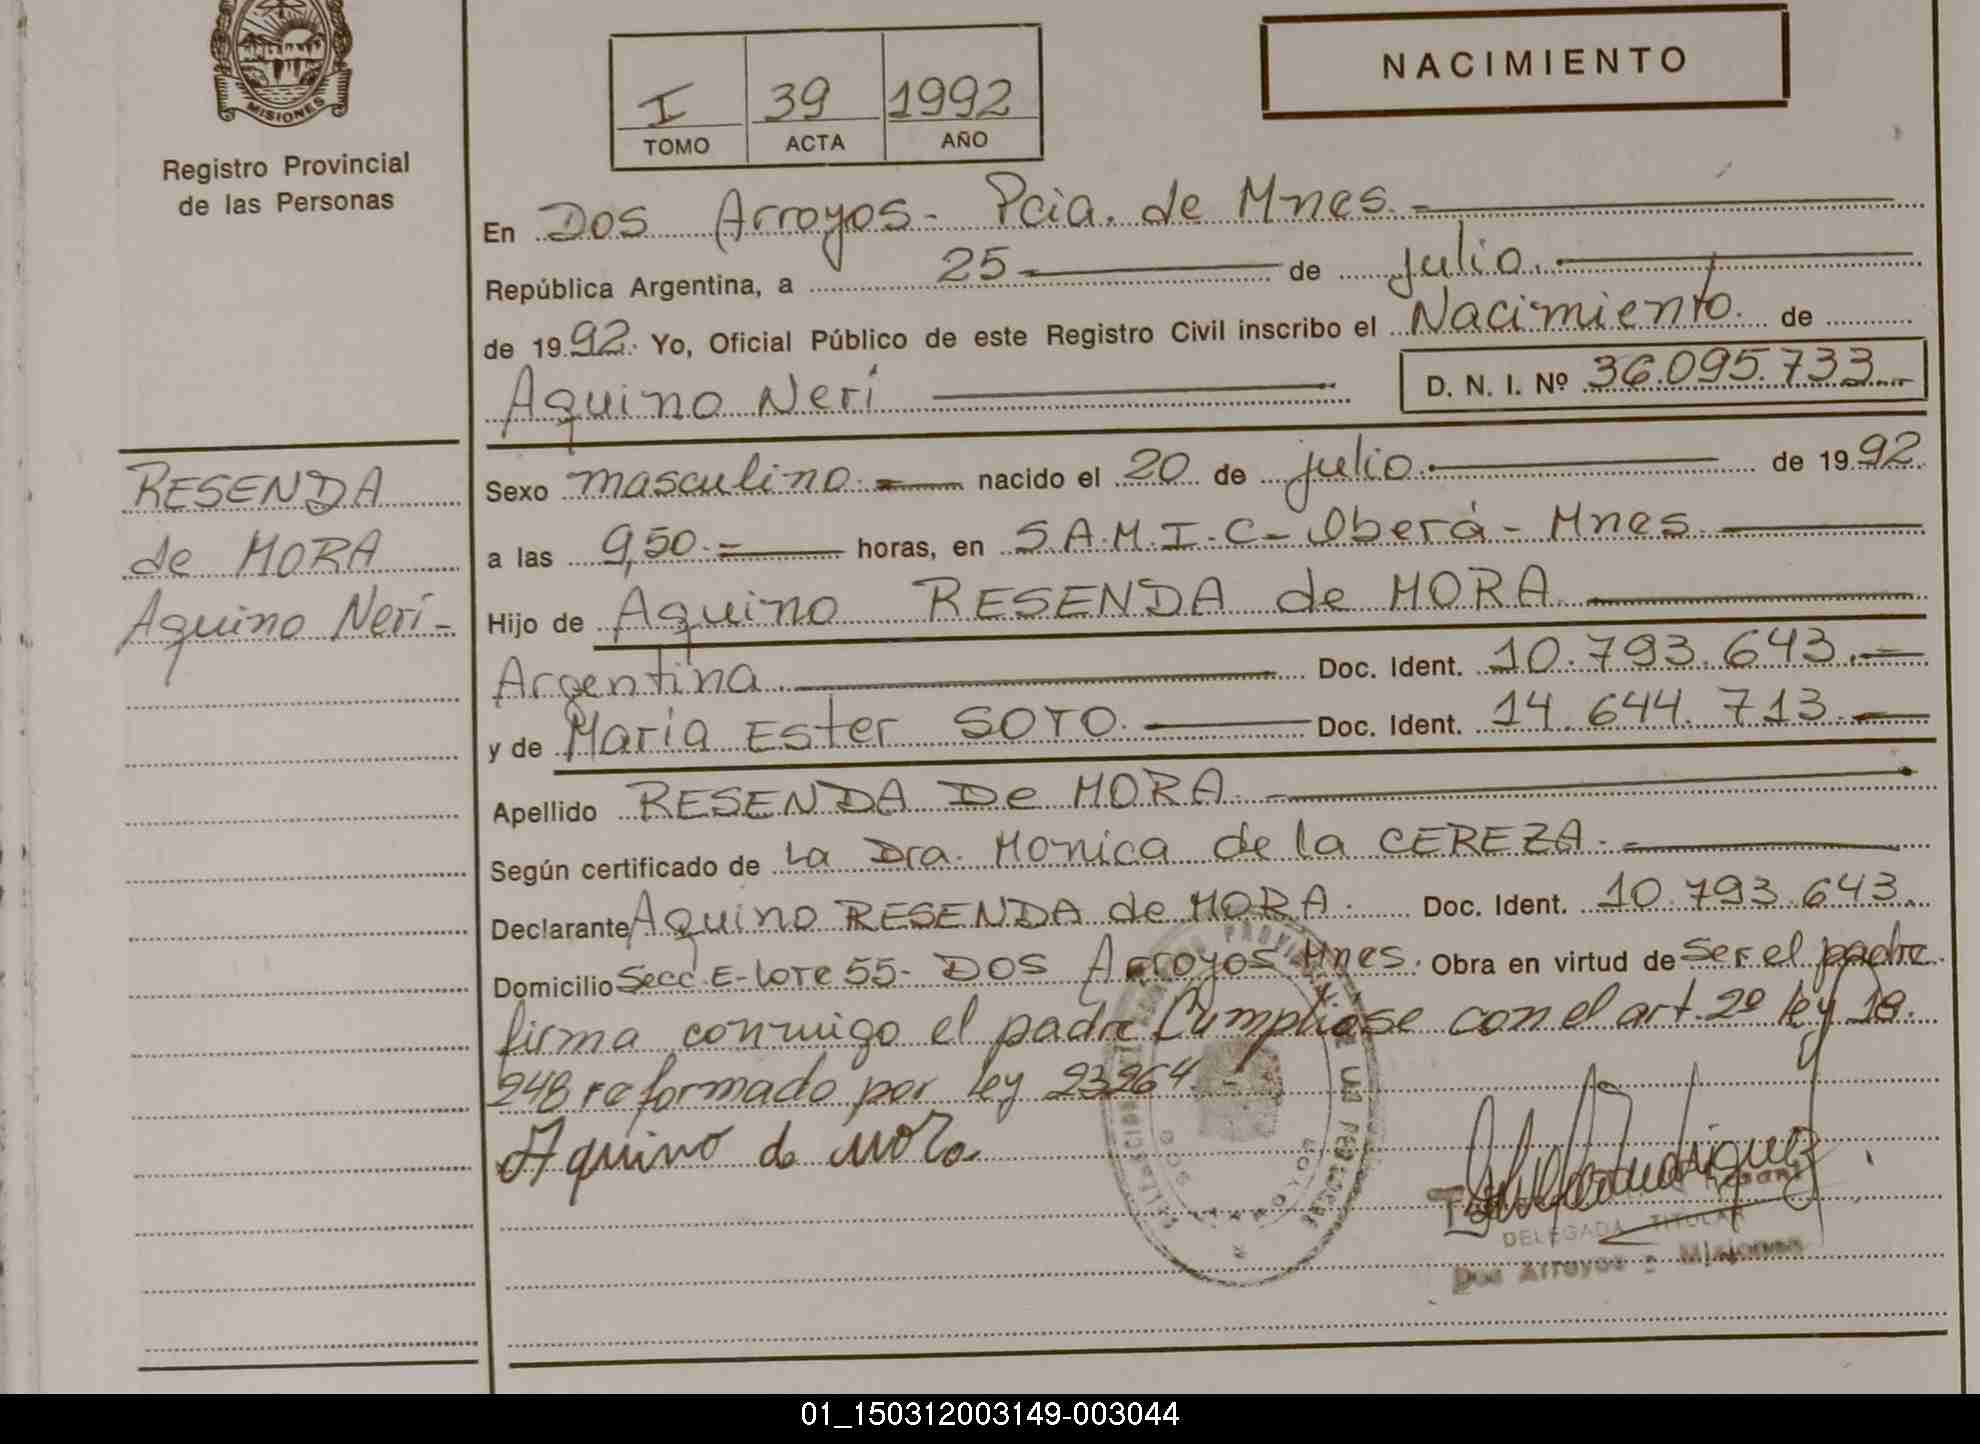 MISIONES
Registro Provincial
de las Personas
I 39 1992
TOMO ACTA AÑO
NACIMIENTO
En Dos Arroyos - Pcia. de Mnes.
República Argentina, a 25 de julio
de 1992. Yo, Oficial Público de este Registro Civil inscribo el Nacimiento de
Aquino Neri D. N. I. Nº 36.095.733
RESENDA
de MORA
Aquino Neri -
Sexo masculino nacido el 20 de julio de 1992
a las 9,50 horas, en S.A.M.I.C - Oberá - Mnes
Hijo de Aquino RESENDA de MORA
Argentina Doc. Ident. 10.793.643.
y de María Ester SOTO Doc. Ident. 14.644.713.
Apellido RESENDA De MORA
Según certificado de La Dra. Monica de la CEREZA
Declarante Aquino RESENDA de MORA. Doc. Ident. 10.793.643.
Domicilio Secc. E - Lote 55 - DOS Arroyos Mnes. Obra en virtud de Ser el padre
firma conmigo el padre Cumpliose con el art. 2º ley 18.
248 reformado por ley 23264.
Aquino de mora
DELEGADA TITULAR
Dos Arroyos - Misiones
01_150312003149-003044